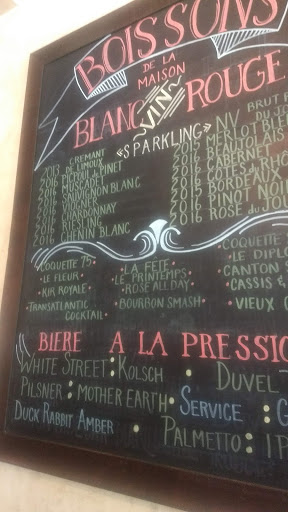 BOISSONS
DE LA
MAISON
BLANC VIN ROUGE
«SPARKLING»
BRUT R
2013 CREMANT DE LIMOUX
2016 PICPOUL DE PINET
2016 MUSCADET
2016 SAUVIGNON BLANC
2016
2016 CHARDONNAY
2016 RIESLING
2016 CHENIN BLANC
NV DU JE
2015 MERLOT
2016 BEAUJOLAIS
2015 CABERNET
2016 COTES du RHO
2016 BORDEAUX
2016 PINOT NOI
2016 ROSÉ du JOU
COQUETTE 75
LE FLEUR
KIR ROYALE
TRANSATLANTIC
COCKTAIL
LA FÊTE
LE PRINTEMPS
ROSE ALL DAY
BOURBON SMASH
COQUETTE S
LE DIPLO
CANTON S
CASSIS &
VIEUX C
BIERE A LA PRESSIO
WHITE STREET: KOLSCH • DUVEL
PILSNER: MOTHER EARTH • SERVICE : G
DUCK RABBIT AMBER • PALMETTO: IP